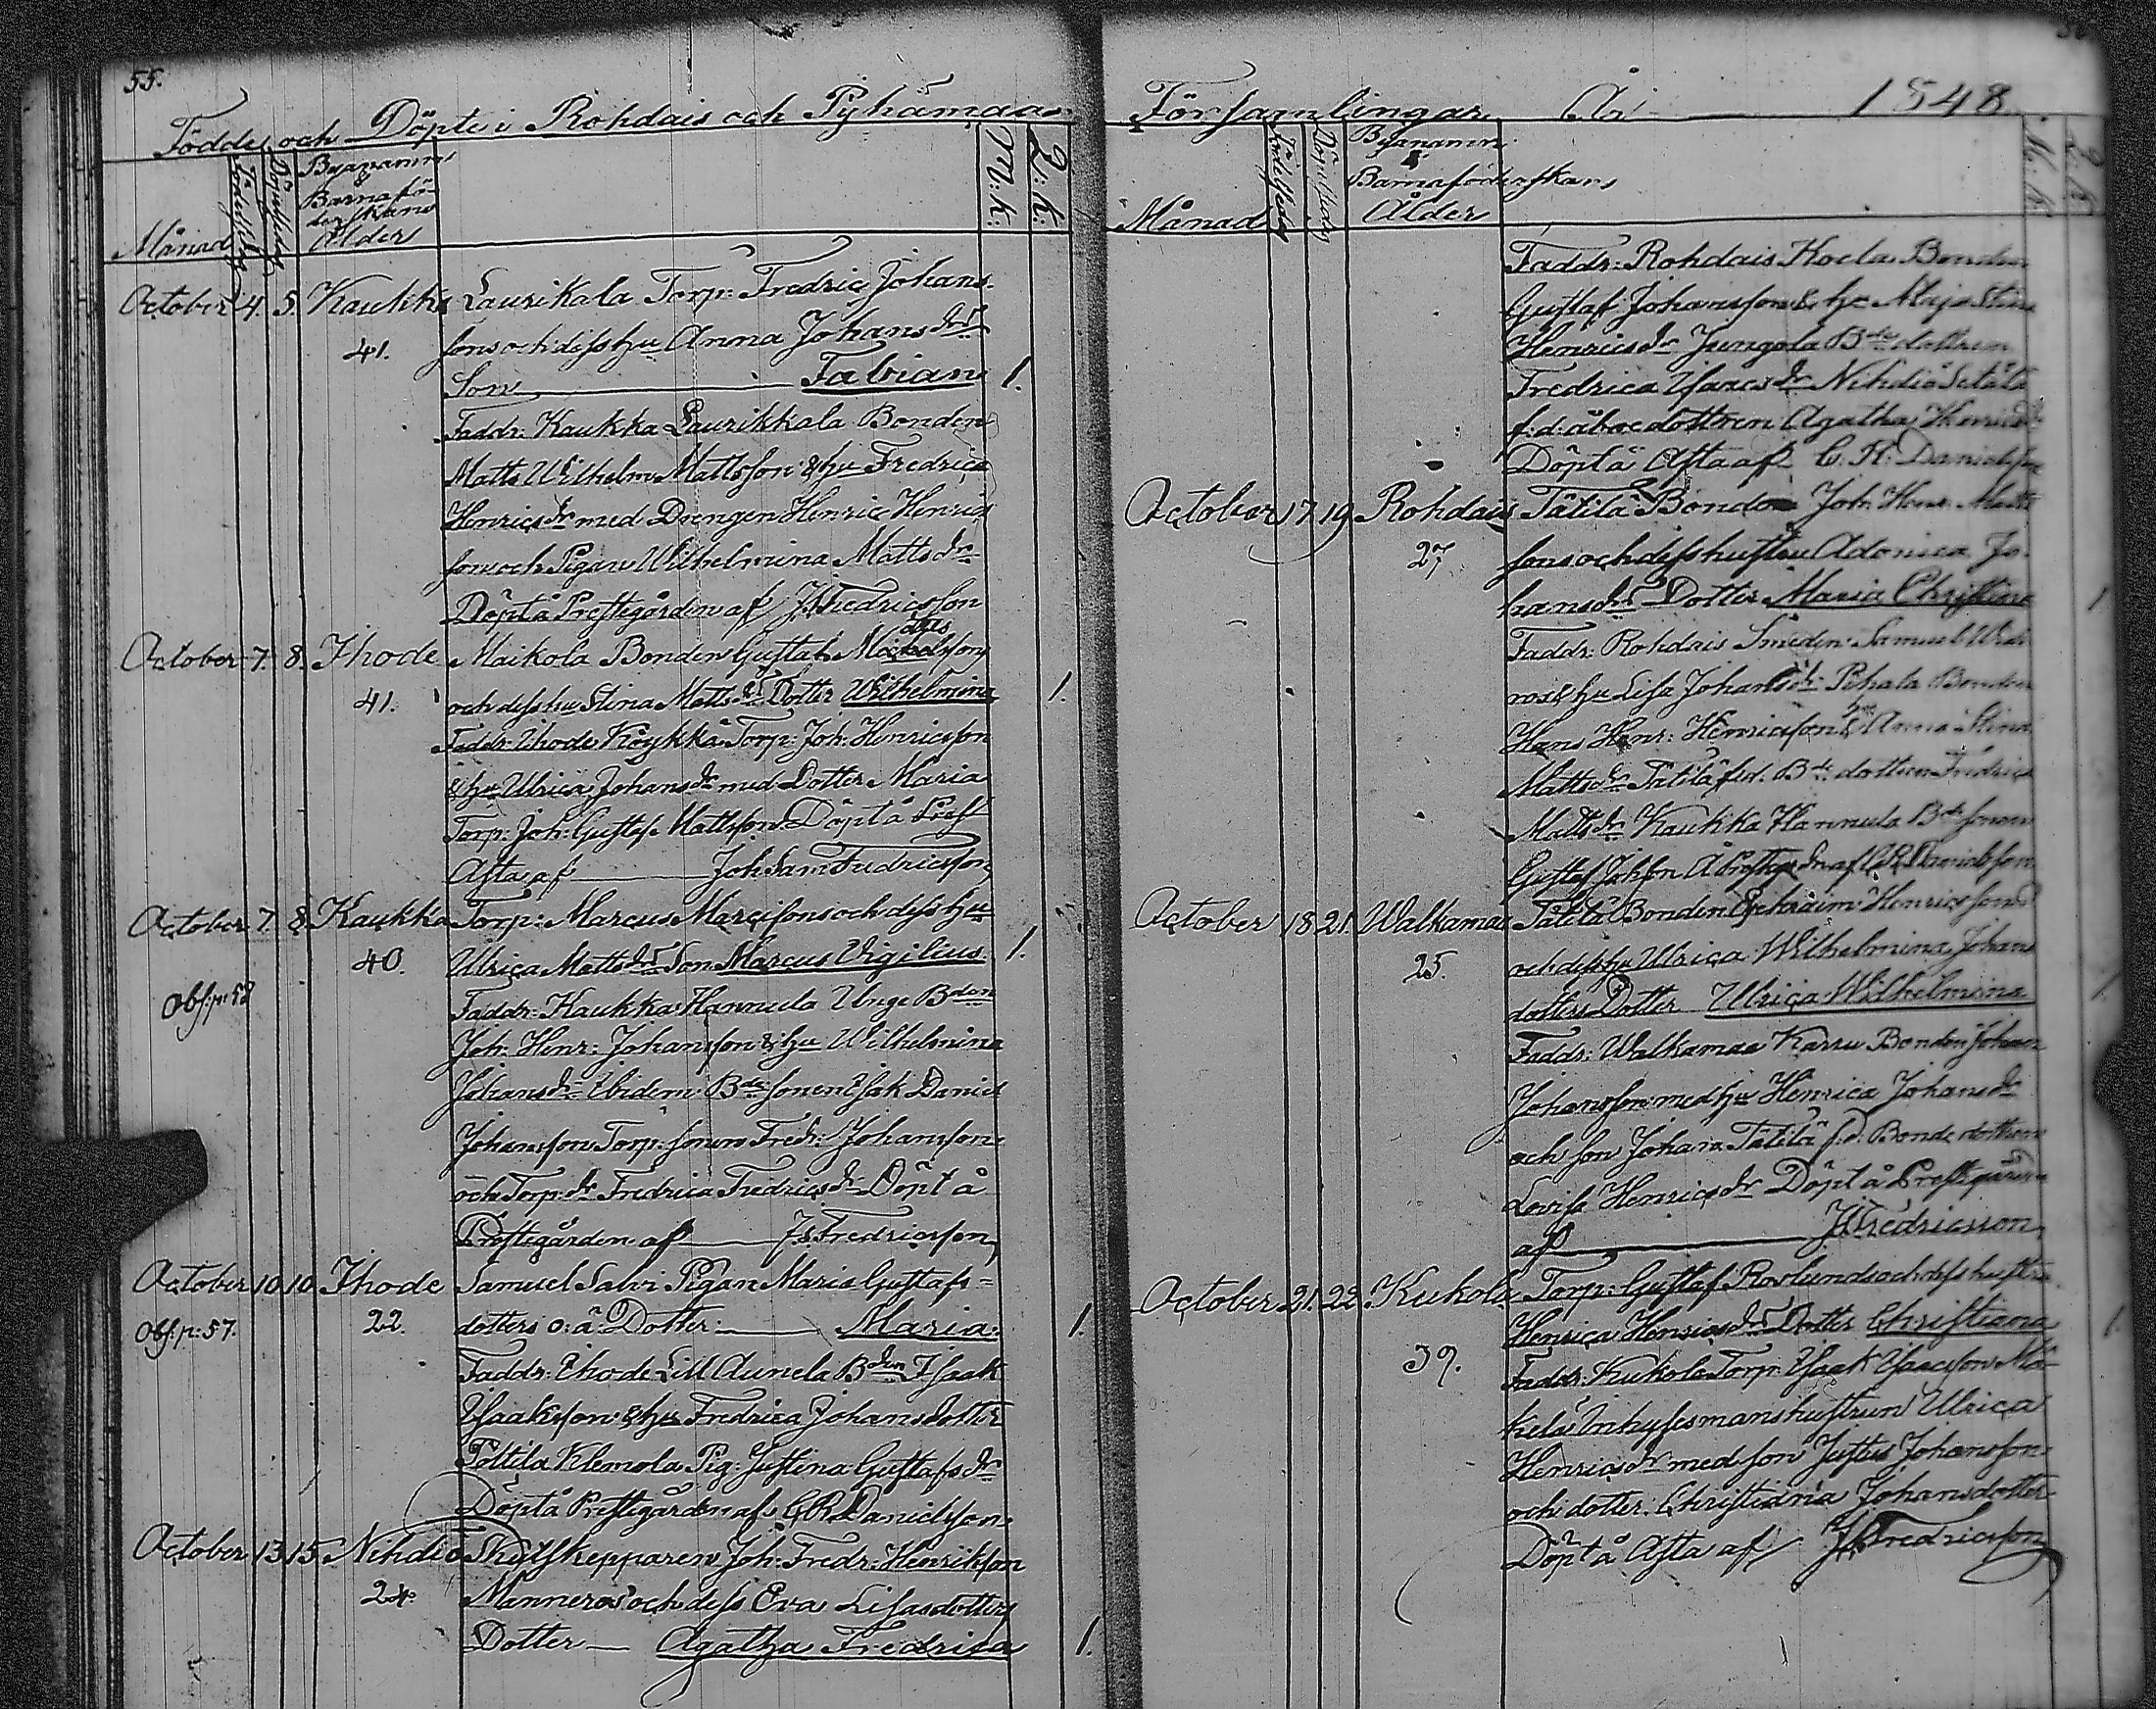 55.
Födde och Döpte i Rohdais och Pyhämaa
Månad Födelsedag Döpelsedag Byanamn & Barnaföderskans Ålder M:k: Q:k:
October 4. 5. Kaukka Laurikala Torp: Fredric Johans-
41. sons och dess hu Anna Johansdrs
Son Fabian 1.
Faddr: Kaukka Laurikkala Bonden
Matts Wilhelm Mattsson & hu Fredrica
Henricsdr med Drengen Henric Henrics
son och Pigan Wilhelmina Mattsdr
Döpt å Prestegården af J.S. Fredricsson
October 7. 8. Ihode Maikola Bonden Gustaf
41. och dess hu Stina Mattsdrs Dotter Wilhelmina 1.
Faddr: Ihode Köykkä Torp: Joh: Henricsson
& hu Ulrica Johansdr med Dotter Maria
Torp: Joh: Gustaf Mattsson Döpt å Prest
Asta af Joh Sam Fredricsson
October 7. 8. Kaukka Torp: Marcus Marcisons och dess hu
40. Ulrica Mattsdrs Son Marcus Vigilius 1.
Obs: p: 58 Faddr: Kaukka Hannula Unge Bden
Joh: Henr: Johansson & hu Wilhelmina
Johansdr Ibidem Bde sonen Isak Daniel
Johansson Torp: sonen Fredr: Johansson
och Torp: dr Fredrica Fredricsdr Döpt å
Prestegården af J.S. Fredricsson
October 10. 10. Ihode Samuel Salvi Pigan Maria Gustafs=
Obs: p: 57. 22. dotters o: ä: Dotter: Maria: 1.
Faddr: Ihode Lill Aunela Bden Isaak
Isaaksson & hu Fredrica Johansdotter
Pöttila Klemola Pig: Justina Gustafsdr
Döpt å Prestegården af C R Danielsson
October 13. 15. Nihdiö Skutskepparen Joh: Fredr: Henriksson
24. Manneros och dess Eva Lisasdotters
Dotter Agatha Fredrica 1.
Församlingar År 1848
Månad Födelsedag Döpelsedag Byanamn & Barnaföderskans Ålder M: K: Q: K:
Faddr: Rohdais Kocla Bonden
Gustaf Johansson & hu Maja Stina
Henricsdr Jungola Bde dottren
Fredrica Isaacsdr Nihdiö Setälä
f: d: åboe dottren Agatha Henricsdr
Döpt å Asta af C: R: Danielsson
October 17. 19. Rohdais Tätilä Bonden Joh: Henr: Matts
27 sons och dess hustru Adonica Jo-
hansdrs Dotter Maria Christina 1
Faddr: Rohdais Smeden Samuel
& hu Lisa Johansdr Pihala Bonden
Hans Henr: Henricsson & hu Anna Stina
Mattsdr Tätilä f.d. Bde dottren Fredrica
Mattsdr Kaukka Hannula Bde sonen
Gustaf Johsson Å Prestegården af C R Danielsson
October 18. 21. Walkamaa Tätilä Bonden Ephraim Henricssons
25. och dess hu Ulrica Wilhelmina Johans
dotters Dotter Ulrica Wilhelmina 1
Faddr: Walkamaa Karru Bonden Johan
Johansson med hu Henrica Johansdr
och son Johan Tätilä f: d: Bonde dottren
Lovisa Henricsdr Döpt å Prestegården
af J.S. Fredricsson
October 21. 22. Kukola Torp: Gustaf Roslunds och dess hustru
39. Henrica Henricsdrs Dotter Christiana 1.
Faddr: Kukola Torp: Isaak Isaacsson Mik-
kelä Inhysesmanshustrun Ulrica
Henricsdr med son Justus Johansson
och dotter Christiana Johansdotter
Döpt å Asta af J.S. Fredricsson